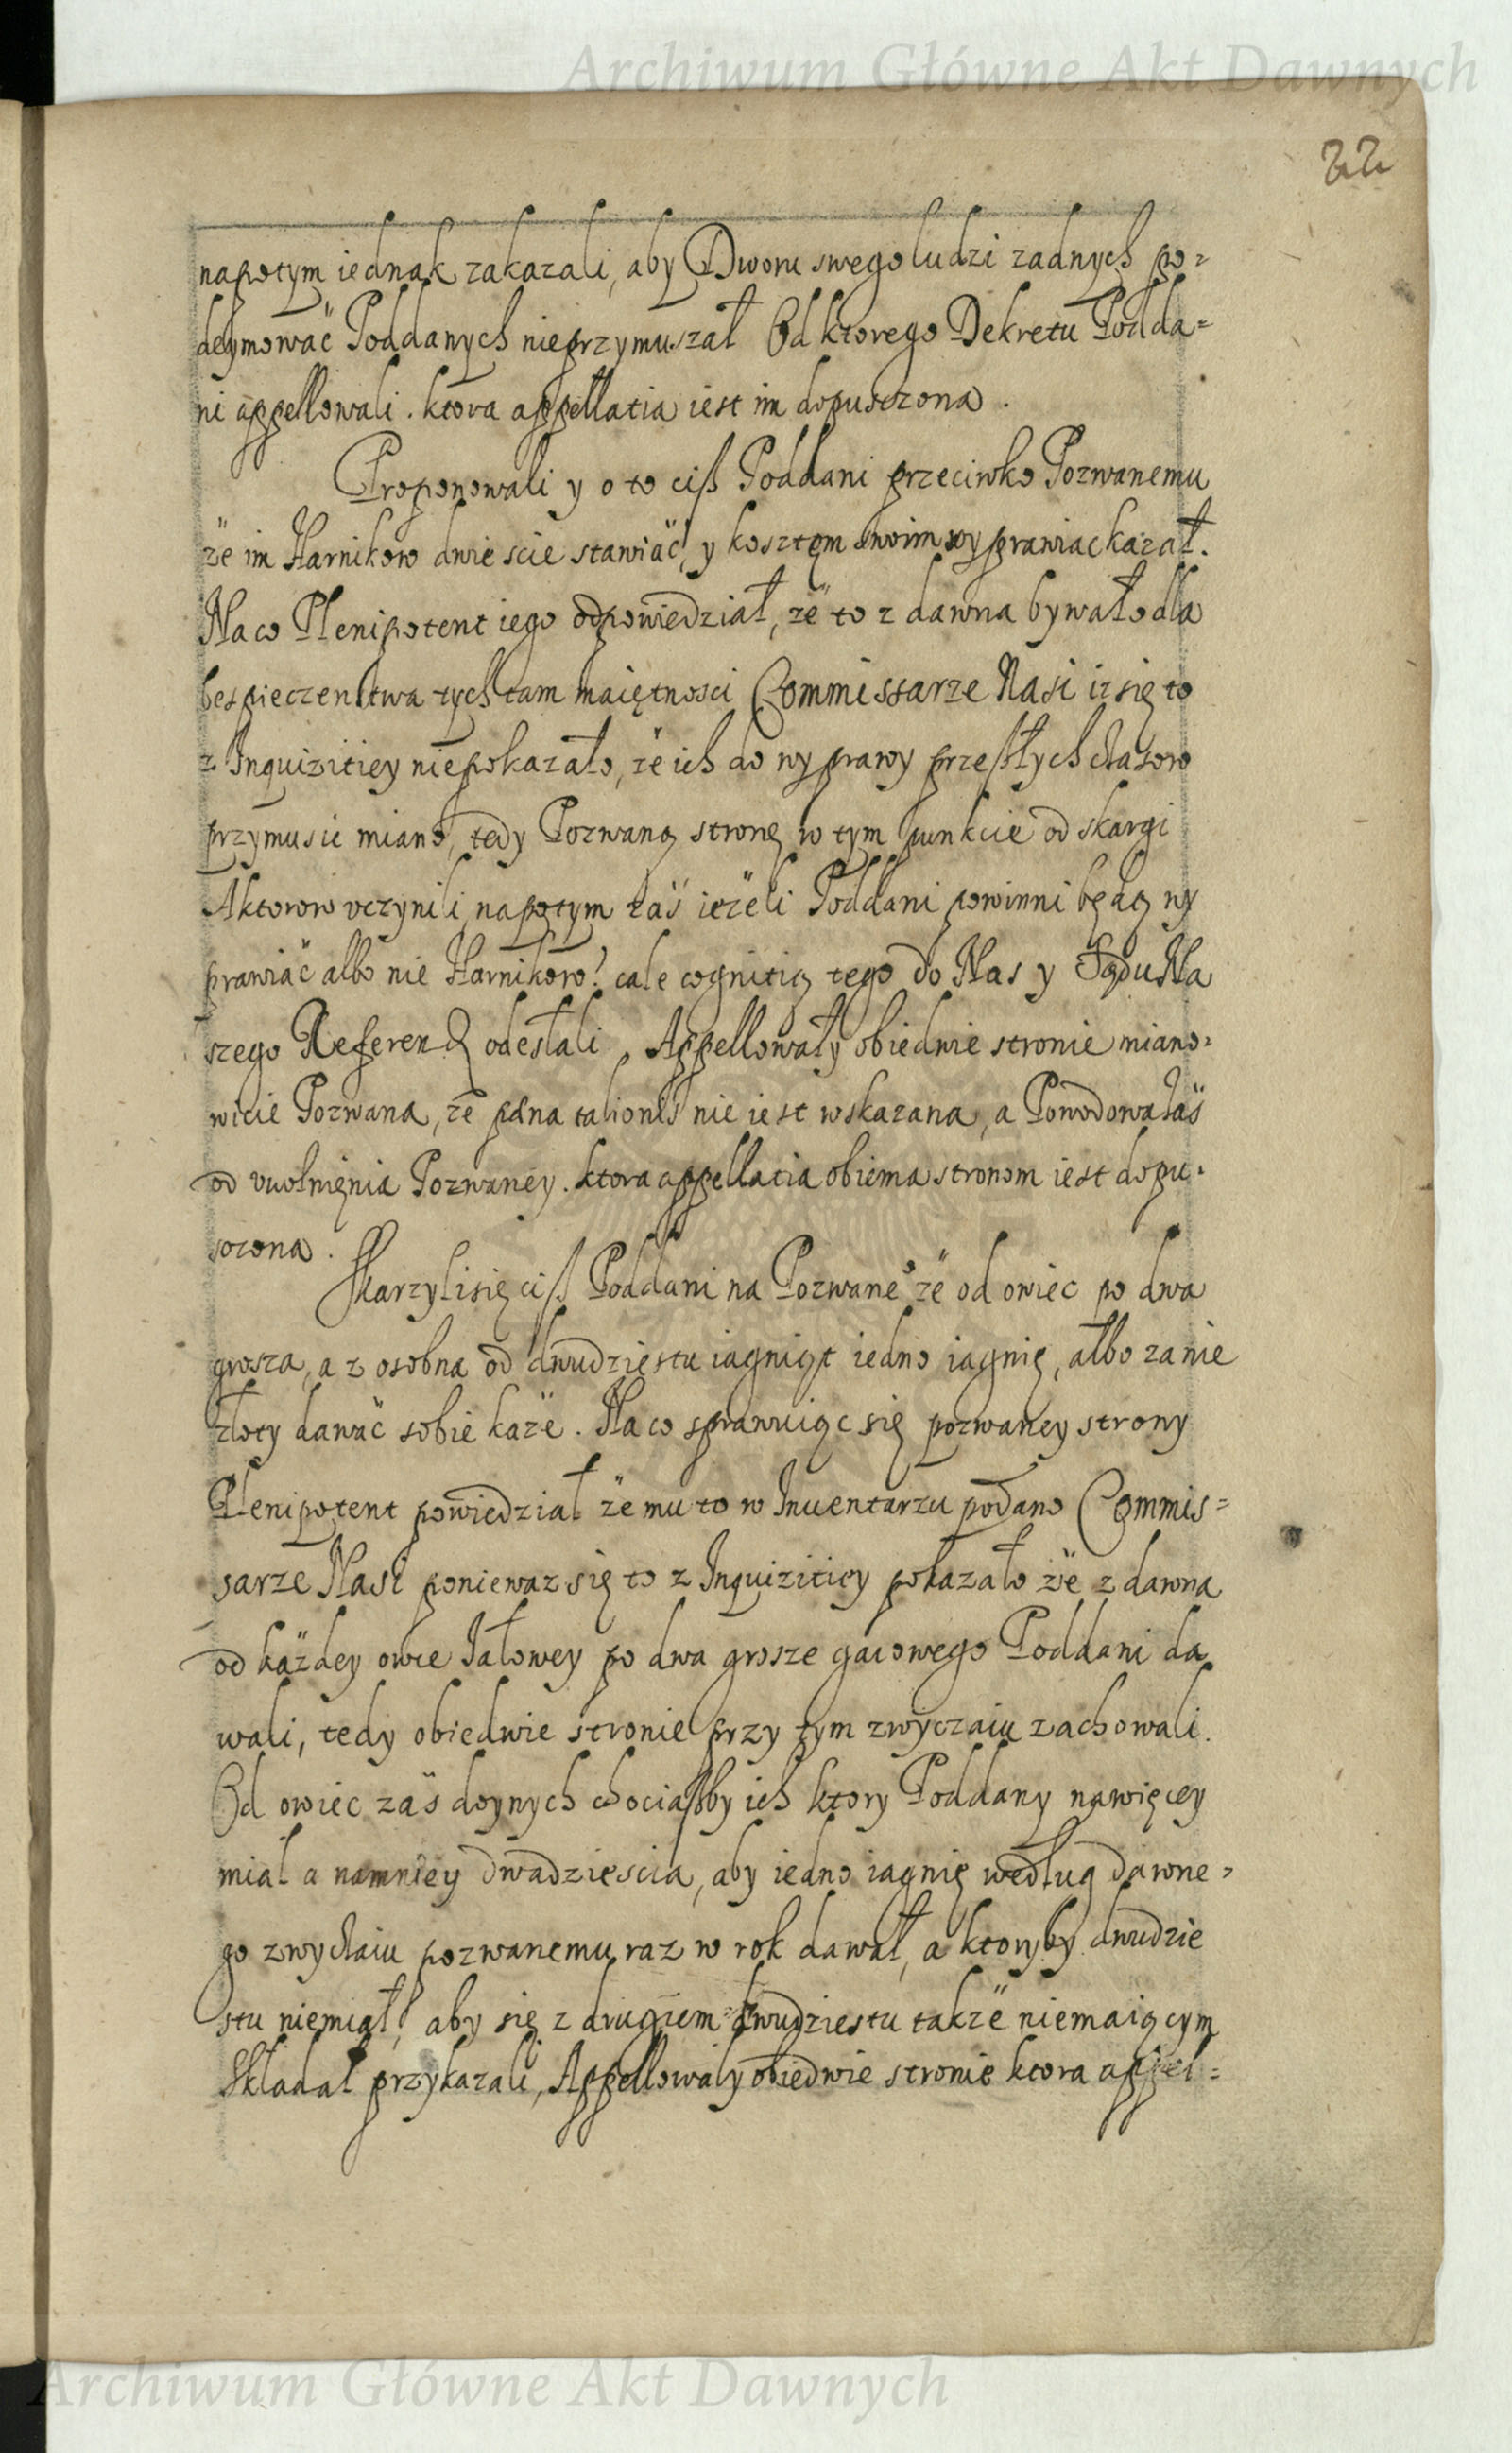 Archiwum Główne Akt Dawnych
22
napotym iednak zakazali, aby Dworu swego ludzi zadnych po=
deymować Poddanych nieprzymuszał Od ktorego Dekretu Podda=
ni appellowali. ktora appellatia iest im dopusczona.
Proponowali y o to ciß Poddani przeciwko Pozwanemu
że im Harnikow dwiescie stawiać, y kosztem swoim wyprawiac kazał.
Na co Plenipotent iego odpowiedział, że to z dawna bywało dla
bespieczenstwa tych tam maiętnosci Commissarze Nasi iz się to
z Inquizitiey niepokazało, że ich do wyprawy przeßłych czasow
przymusic miano, tedy Pozwaną stronę w tym punkcie od skargi
Aktorow vczynili, napotym zaś ieżeli Poddani powinni będą wy
prawiać albo nie Harnikow? cale cognitią tego do Nas y Sądu Na
szego Referend odesłali, Appellowały obiedwie stronie miano=
wicie Pozwana, że pæna talionis nie iest wskazana, a Powodowa zaś
od vwolnięnia Pozwaney. ktora appellatia obiema stronom iest dopu=
sczona.
Skarzyli się ciß Poddani na Pozwane° że od owiec po dwa
grosza, a z osobna od dwudziestu iagniąt iedno iagnię, albo za nie
złoty dawać sobie każe. Na co sprawuiąc się pozwaney strony
Plenipotent powiedział że mu to w Inuentarzu podano Commis=
sarze Nasi poniewaz się to z Inquizitiey pokazało że z dawna
od każdey owce Jałowey po dwa grosze gaiowego Poddani da
wali, tedy obiedwie stronie przy tym zwyczaiu zachowali.
Od owiec zaś doynych chociaßby ich ktory Poddany nawięcey
miał a namniey dwadziescia, aby iedno iagnię według dawne=
go zwyczaiu pozwanemu raz w rok dawał, a ktoryby dwudzie
stu niemiał, aby się z drugiem dwudziestu także niemaiącym
Składał przykazali, Appellowały obiedwie stronie ktora appel=
Archiwum Główne Akt Dawnych